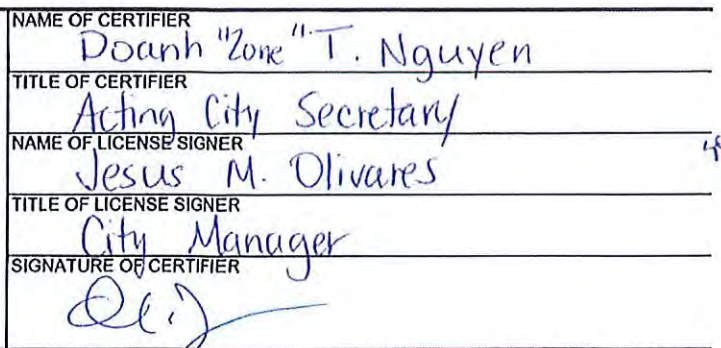 NAME OF CERTIFIER
Doanh "Zone" T. Nguyen
TITLE OF CERTIFIER
Acting City Secretary
NAME OF LICENSE SIGNER
Jesus M. Olivares
TITLE OF LICENSE SIGNER
City Manager
SIGNATURE OF CERTIFIER